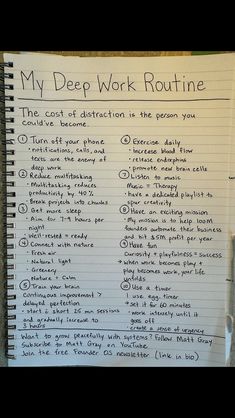 My Deep Work Routine
The cost of distraction is the person you
could've become.
① Turn off your phone
• notifications, calls, and
texts are the enemy of
deep work
② Reduce multitasking
• Multitasking reduces
productivity by 40%
• Break projects into chunks
③ Get more sleep
• Aim for 7-9 hours per
night
• Well-rested = ready
④ Connect with nature
• Fresh air
• Natural light
• Greenery
• Nature = Calm
⑤ Train your brain
Continuous improvement >
delayed perfection
• start @ short 25 min sessions
and gradually increase to
3 hours
⑥ Exercise daily
• increase blood flow
• release endorphins
• promote new brain cells
⑦ Listen to music
Music = Therapy
• have a dedicated playlist to
spur creativity
⑧ Have an exciting mission
• My mission is to help 100M
founders automate their business
and hit $5M profit per year
⑨ Have fun
Curiosity + playfulness = success
→ when work becomes play &
play becomes work, your life
unfolds
⑩ Use a timer
• use egg timer
→ set it for 60 minutes
• work intensly until it
goes off
• create a sense of urgency
Want to grow peacefully with systems? Follow Matt Gray
Subscribe to Matt Gray on YouTube
Join the free Founder OS newsletter (link in bio)